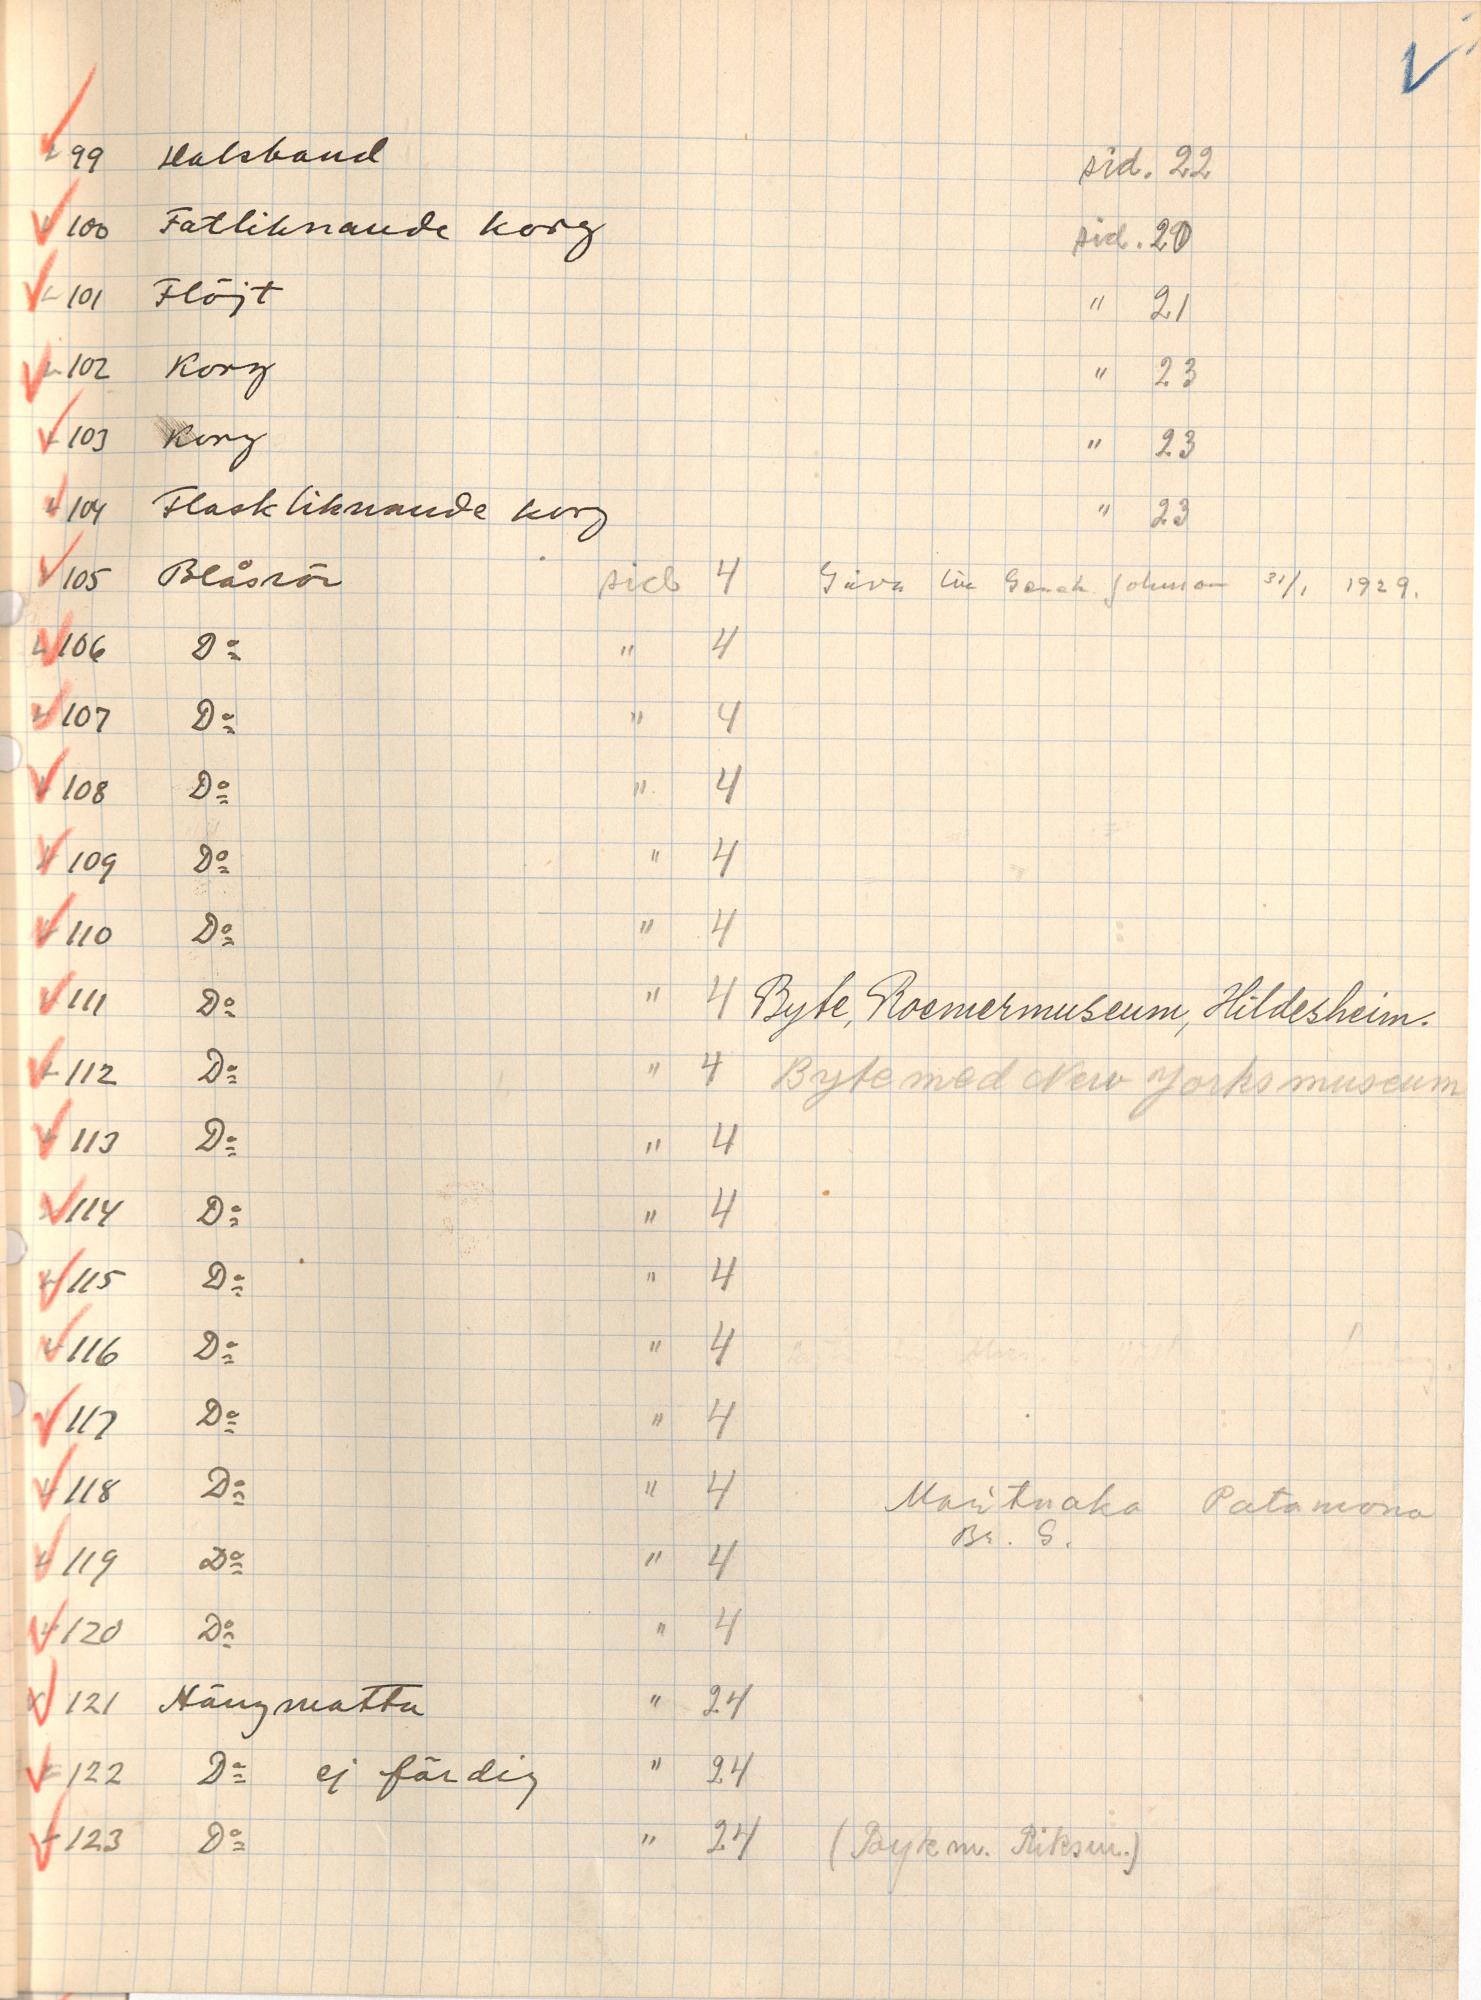 99 Halsband sid. 22
100 Fatliknande korg sid. 20
101 Flöjt " 21
102 Korg " 23
103 Korg " 23
104 Flaskliknande korg " 23
105 Blåsrör sid 4 Gåva till Johnson 31/1 1929.
106 Do " 4
107 Do " 4
108 Do " 4
109 Do " 4
110 Do " 4
111 Do " 4 Byte, Roemermuseum, Hildesheim.
112 Do " 4 Byte med New Yorks museum
113 Do " 4
114 Do " 4
115 Do " 4
116 Do " 4
117 Do " 4
118 Do " 4 Patamona
Br. G.
119 Do " 4
120 Do " 4
121 Hängmatta " 24
122 Do ej färdig " 24
123 Do " 24 (Byte m. Riksm.)